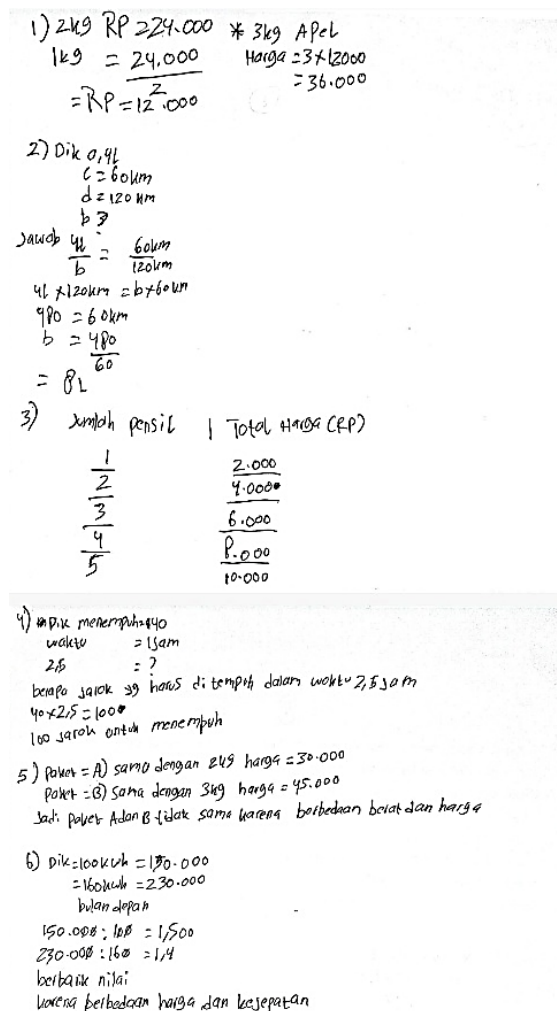 1) 2kg RP = 24.000 * 3kg APel
1kg = 24.000 Harga = 3 x 12000
2 = 36.000
= RP = 12.000
2) Dik 0,4L
c = 60km
d = 120 km
b ?
Jawab 4L = 60km
b 120km
4L x 120km = b x 60km
480 = 60km
b = 480
60
= 8L
3) Jumlah pensil | Total Harga (RP)
1 2.000
2 4.000
3 6.000
4 8.000
5 10.000
4) Dik menempuh = 40
waktu = 1 Jam
2,5 = ?
berapa jarak yg harus di tempuh dalam waktu 2,5 jam
40 x 2,5 = 100
100 jarak untuk menempuh
5) Paket = A) sama dengan 2kg harga = 30.000
Paket = B) sama dengan 3kg harga = 45.000
Jadi paket A dan B tidak sama karena berbedaan berat dan harga
6) Dik = 100 kwh = 150.000
= 160 kwh = 230.000
bulan depan
150.000 : 100 = 1,500
230.000 : 160 = 1,4
berbaik nilai
karena berbedaan harga dan kesepatan